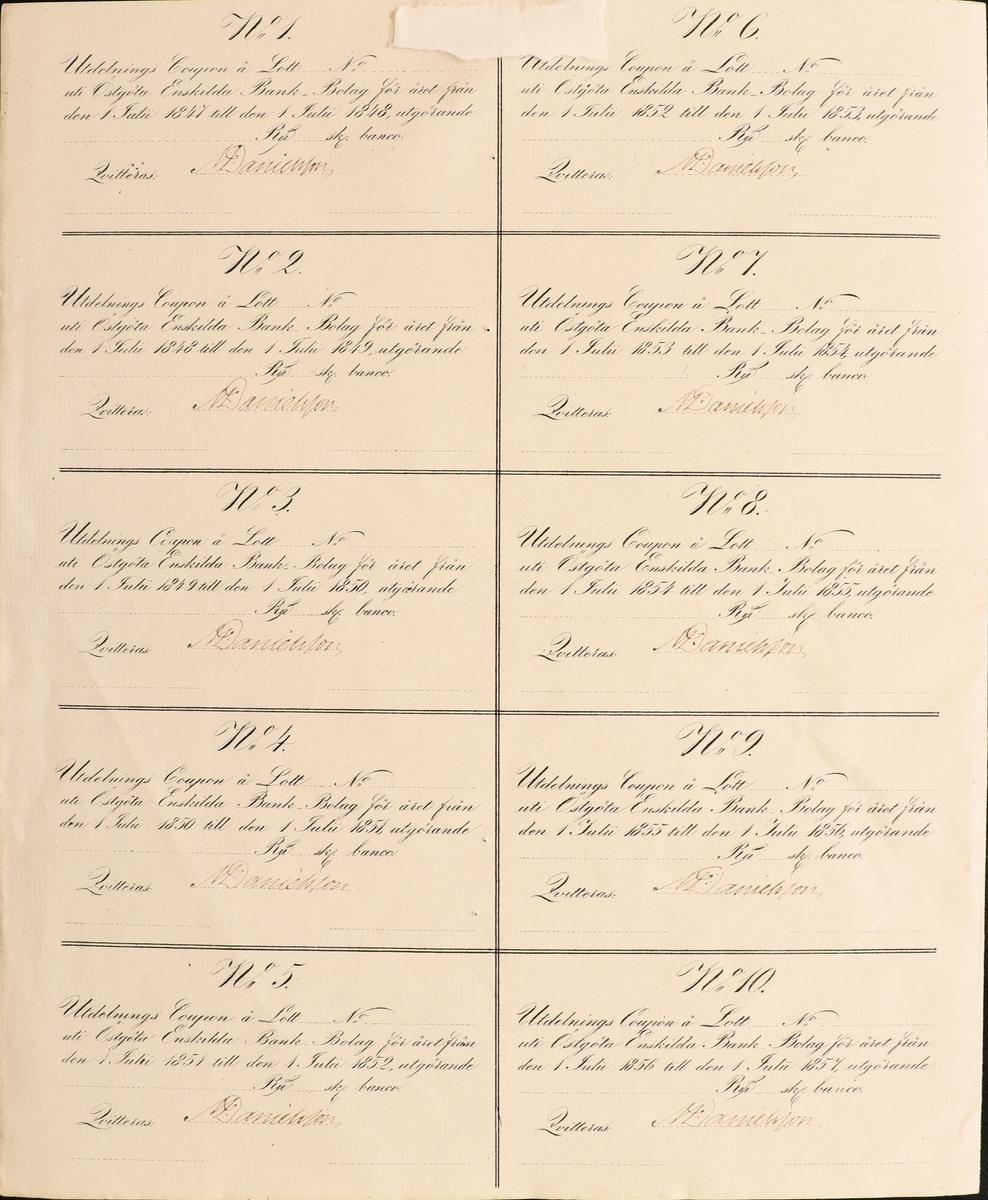 No 1.
Utdelnings Coupon å Lott No
uti Östgöta Enskilda Bank-Bolag för året från
den 1 Julii 1847 till den 1 Julii 1848, utgörande
sk. banco.
Qvitteras:
No 2.
Utdelnings Coupon å Lott No
uti Östgöta Enskilda Bank-Bolag för året från
den 1 Julii 1848 till den 1 Julii 1849, utgörande
sk. banco.
Qvitteras:
No 3.
Utdelnings Coupon å Lott No
uti Östgöta Enskilda Bank-Bolag för året från
den 1 Julii 1849 till den 1 Julii 1850, utgörande
sk. banco.
Qvitteras:
No 4.
Utdelnings Coupon å Lott No
uti Östgöta Enskilda Bank-Bolag för året från
den 1 Julii 1850 till den 1 Julii 1851, utgörande
sk. banco.
Qvitteras:
No 5.
Utdelnings Coupon å Lott No
uti Östgöta Enskilda Bank-Bolag för året från
den 1 Julii 1851 till den 1 Julii 1852, utgörande
sk. banco.
Qvitteras:
No 6.
Utdelnings Coupon å Lott No
uti Östgöta Enskilda Bank-Bolag för året från
den 1 Julii 1852 till den 1 Julii 1853, utgörande
sk. banco.
Qvitteras:
No 7.
Utdelnings Coupon å Lott No
uti Östgöta Enskilda Bank-Bolag för året från
den 1 Julii 1853 till den 1 Julii 1854, utgörande
sk. banco
Qvitteras:
No 8.
Utdelnings Coupon å Lott No
uti Östgöta Enskilda Bank-Bolag för året från
den 1 Julii 1854 till den 1 Julii 1855, utgörande
sk. banco.
Qvitteras:
No 9.
Utdelnings Coupon å Lott No
uti Östgöta Enskilda Bank-Bolag för året från
den 1 Julii 1855 till den 1 Julii 1856, utgörande
sk. banco.
Qvitteras:
No 10.
Utdelnings Coupon å Lott No
uti Östgöta Enskilda Bank-Bolag för året från
den 1 Julii 1856 till den 1 Julii 1857, utgörande
sk. banco.
Qvitteras: